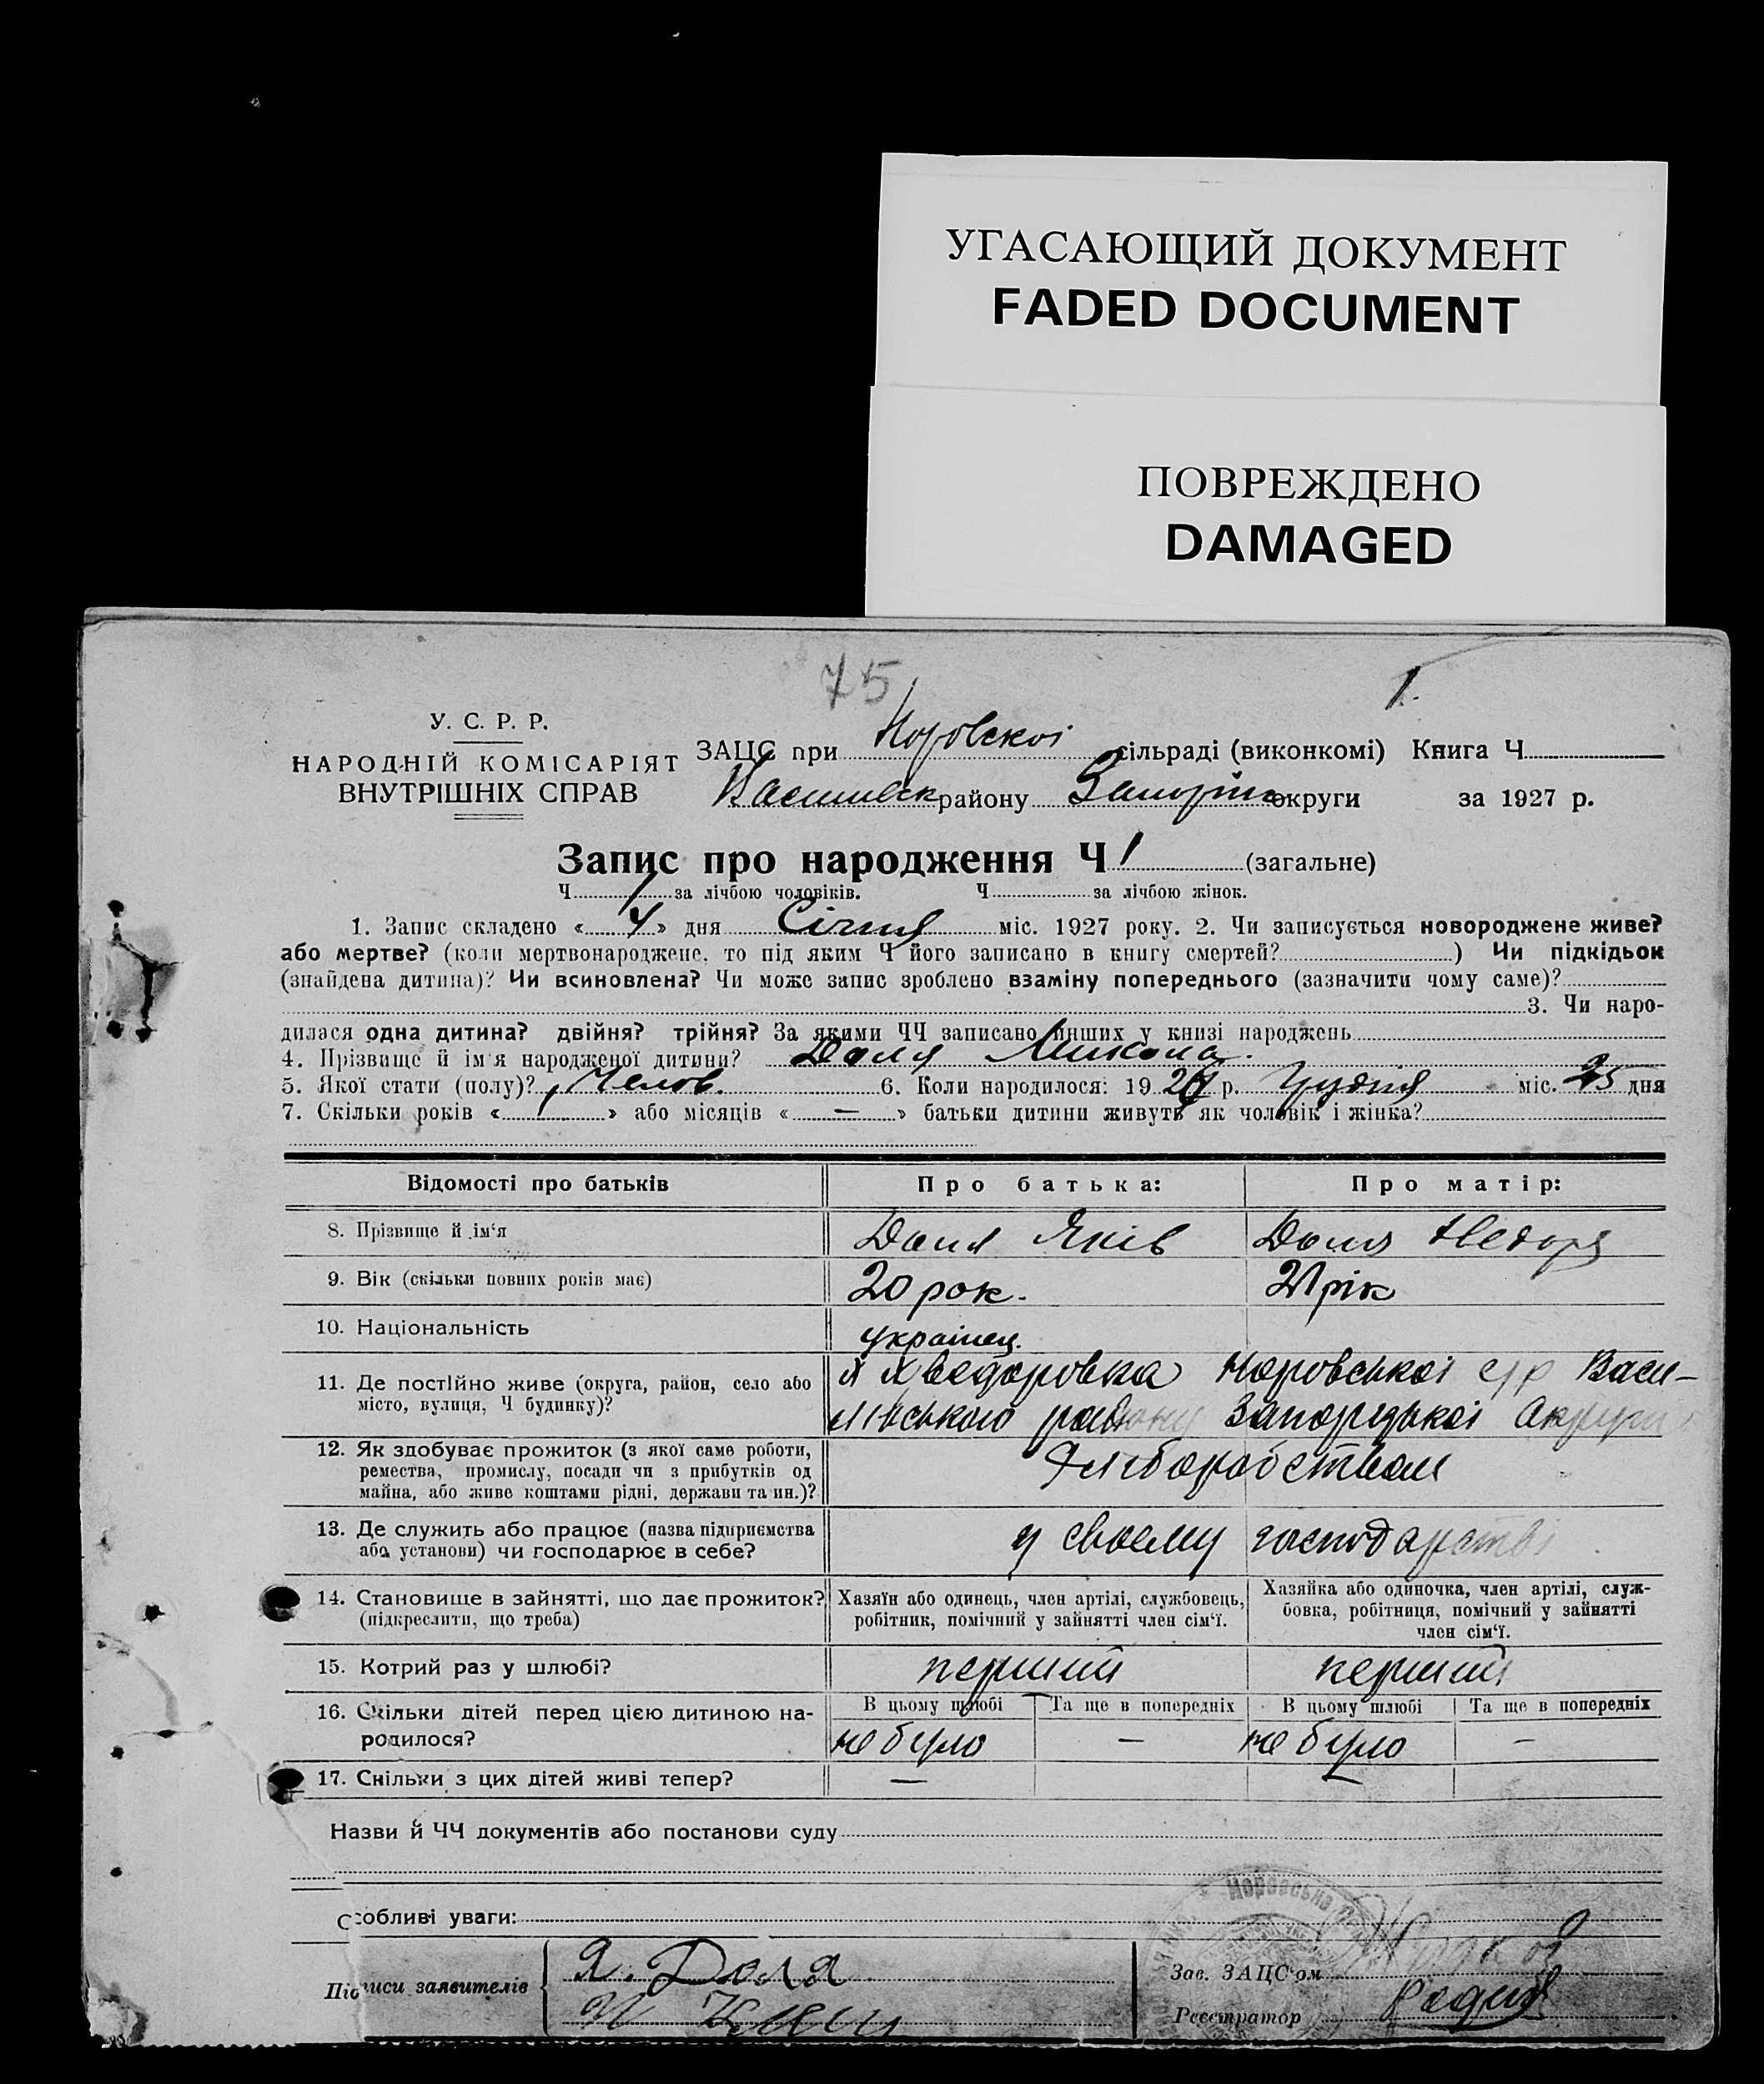 УГАСАЮЩИЙ ДОКУМЕНТ
FADED DOCUMENT
ПОВРЕЖДЕНО
DAMAGED
75
1.
У. С. Р. Р.
НАРОДНІЙ КОМІСАРІЯТ
ВНУТРІШНІХ СПРАВ
ЗАЦС при сільраді (виконкомі) Книга Ч
району округи за 1927 р.
Запис про народження Ч 1 (загальне)
Ч 1 за лічбою чоловіків. Ч за лічбою жінок.
1. Запис складено « 4 » дня Січня міс. 1927 року. 2. Чи записується новороджене живе?
або мертве? (коли мертвонароджене, то під яким Ч його записано в книгу смертей? ) Чи підкідьок
(знайдена дитина)? Чи всиновлена? Чи може запис зроблено взаміну попереднього (зазначити чому саме)?
3. Чи наро-
дилася одна дитина? двійня? трійня? За якими ЧЧ записано инших у книзі народжень
4. Прізвище й ім'я народженої дитини? Доля Микола.
5. Якої стати (полу)? Челов. 6. Коли народилося: 19 26 р. Грудня міс. 25 дня
7. Скільки років « 1 » або місяців « — » батьки дитини живуть як чоловік і жінка?
Відомості про батьків Про батька: Про матір:
8. Прізвище й ім'я Доля Яків Доля
9. Вік (скільки повних років має) 20 рок. 21 рік
10. Національність українец.
11. Де постійно живе (округа, район, село або
місто, вулиця, Ч будинку)?
Хведоровка Норовської с/р Васи-
лівського району Запорізької Округи
12. Як здобуває прожиток (з якої саме роботи,
ремества, промислу, посади чи з прибутків од
майна, або живе коштами рідні, держави та ин.)?
Хліборобством
13. Де служить або працює (назва підприємства
або установи) чи господарює в себе?
у своєму господарстві
14. Становище в зайнятті, що дає прожиток?
(підкреслити, що треба)
Хазяїн або одинець, член артілі, службовець,
робітник, помічний у зайнятті член сім'ї.
Хазяйка або одиночка, член артілі, служ-
бовка, робітниця, помічний у зайнятті
член сім'ї.
15. Котрий раз у шлюбі? перший перший
16. Скільки дітей перед цією дитиною на-
родилося?
В цьому шлюбі Та ще в попередніх В цьому шлюбі Та ще в попередніх
не було — не було —
17. Скільки з цих дітей живі тепер? — —
Назви й ЧЧ документів або постанови суду
Особливі уваги:
Підписи заявителів
Я. Доля
Зав. ЗАЦС'ом
Реєстратор